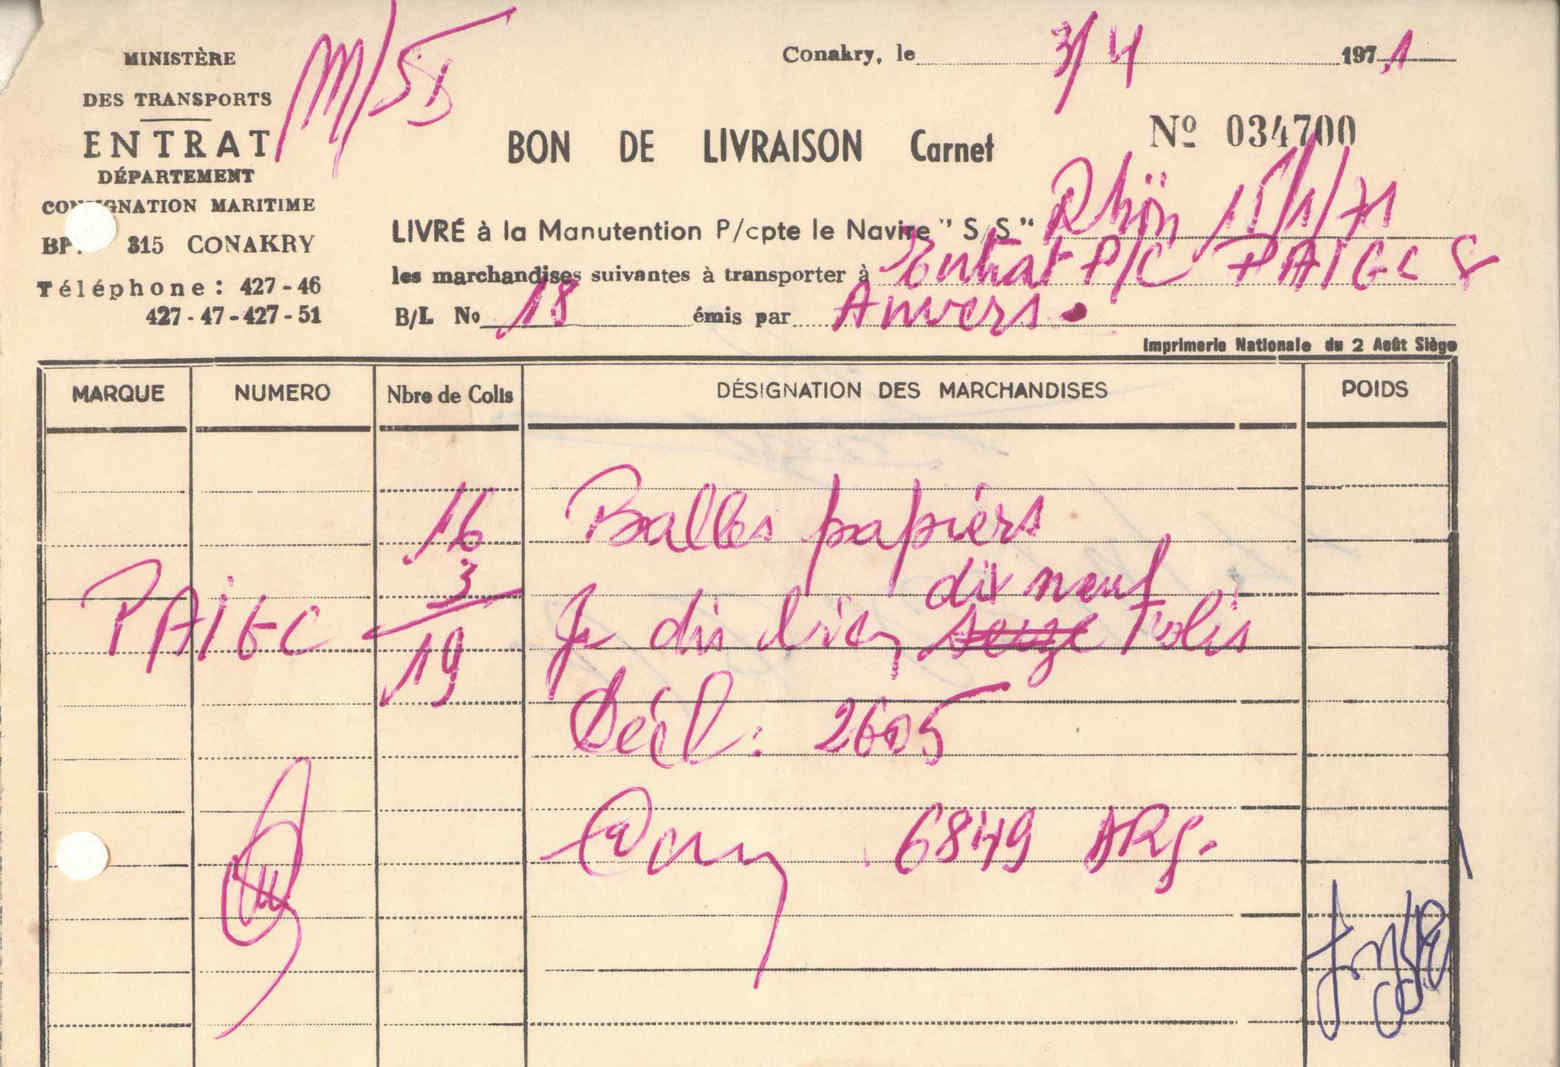 MINISTÈRE
DES TRANSPORTS
ENTRAT
DÉPARTEMENT
CONSIGNATION MARITIME
BP. 315 CONAKRY
Téléphone : 427-46
427-47-427-51
Conakry, le 3/4 1971
Nº 034700
BON DE LIVRAISON Carnet
LIVRÉ à la Manutention P/cpte le Navire " S/S " Rhön 15/1/71
les marchandises suivantes à transporter à Entrat P/C PAIGC
B/L No 18 émis par Anvers.
Imprimerie Nationale du 2 Août Siège
MARQUE NUMERO Nbre de Colis DÉSIGNATION DES MARCHANDISES POIDS
16 Balles papiers
3 dix neuf
PAIGC 19 Je dis bien seize Colis
Décl : 2605
Cam 6849